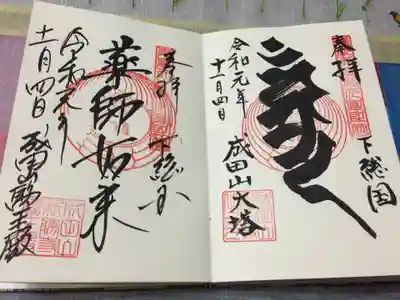 奉拝
下総国
令和元年
十一月四日
成田山大塔
奉拝
下総国
薬師如来
令和元年
十一月四日
成田山